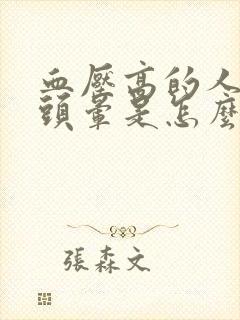 血壓高的人
頭暈是怎麼
張森文